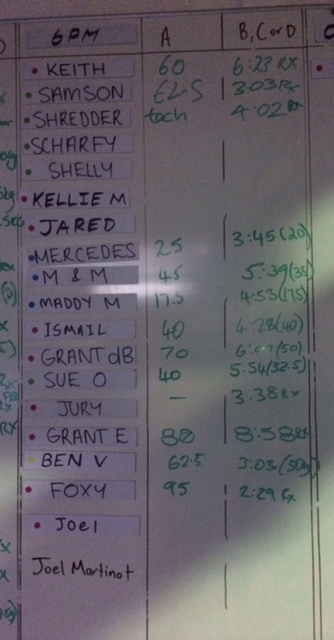 6PM A B, C or D
KEITH 60 6:23 RX
SAMSON 3:03 Rx
SHREDDER tech 4:02 Rx
SCHARFY
SHELLY
KELLIE M
JARED
MERCEDES 25 3:45 (20)
M & M 45 5:39
MADDY M 17.5 4:53
ISMAIL 40 4:28 (40)
GRANT dB 70 (50)
SUE O 40 5:54 (32.5)
JURY — 3.38 RX
GRANT E 80 8:58 RX
BEN V 62.5 3:03
FOXY 95 2:29 Rx
Joel
Joel Martinot